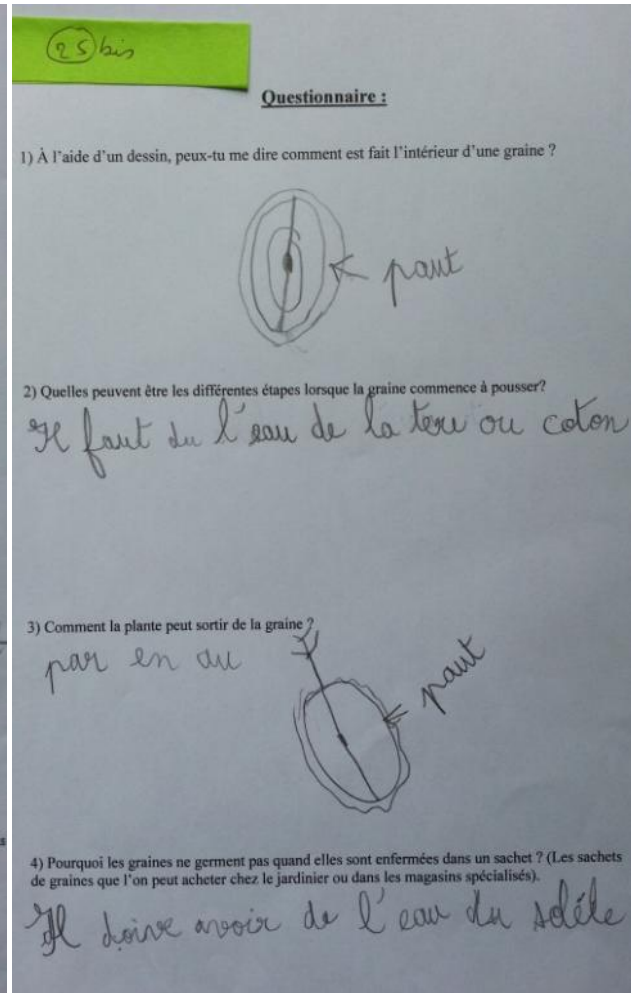 25 bis
Questionnaire :
1) À l'aide d'un dessin, peux-tu me dire comment est fait l'intérieur d'une graine ?
paut
2) Quelles peuvent être les différentes étapes lorsque la graine commence à pousser?
Il faut du l'eau de la tere ou coton
3) Comment la plante peut sortir de la graine ?
par en au
paut
4) Pourquoi les graines ne germent pas quand elles sont enfermées dans un sachet ? (Les sachets
de graines que l'on peut acheter chez le jardinier ou dans les magasins spécialisés).
Il doive avoir de l'eau du soléle